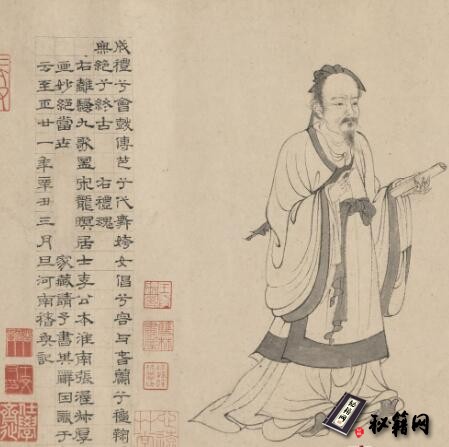 成禮兮會鼓傳芭兮代舞姱女倡兮容与春蘭兮穐鞠
無絕兮終古 右禮魂
右離騷九歌啚宋龍瞑居士李公本淮南張渥叔厚
亟妙絕當世 家藏請予書其辭因識于
云至正廿一年辛丑三月旦河南褚奐記
秘籍网
秘籍网